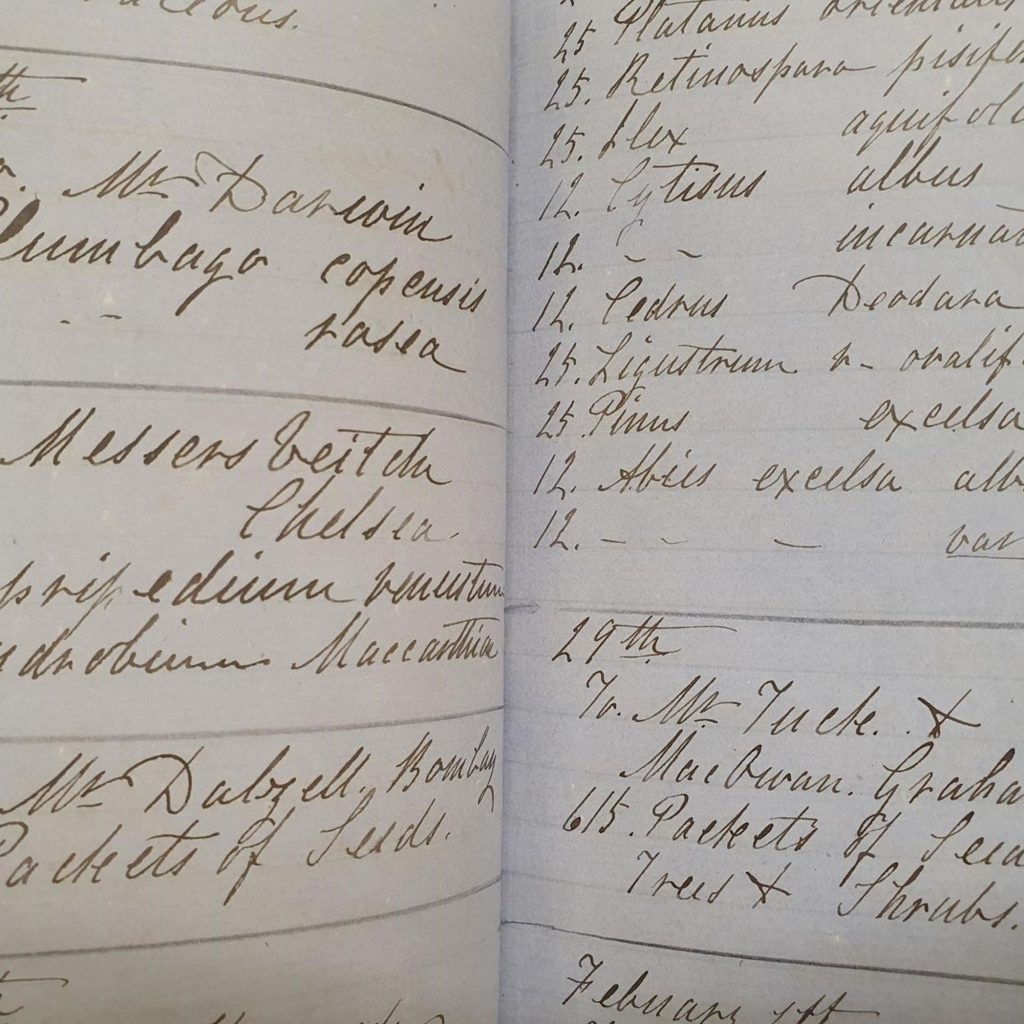 th
Mr Darwin
lumbago copensis
- - rosea
Messers Veitch
Chelsea.
pripedium venustum
drobium Maccarthiae
Mr Dalzell. Bombay
Packets of Seeds.
25 Platanus orientalis
25. Retinospara pisife
25. Ilex aquifoli
12. Cytisus albus
12. - - incarnat
12. Cedrus Deodara
25. Ligustrum v- ovalif
25. Pinus excelsa
12. Abies excelsa alb
12. - - - var
29th
To. Mr Tuck. &
MacOwan. Graha
615. Packets of Seed
Trees & Shrubs.
February 1st